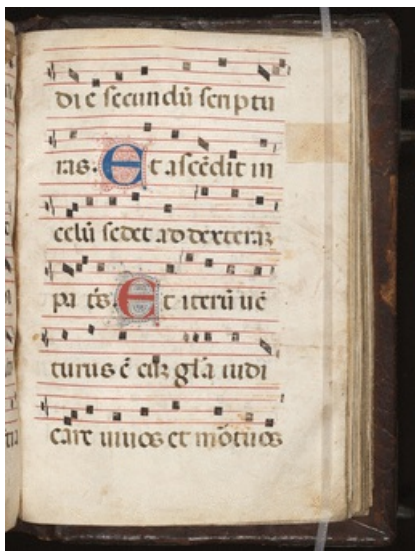 die secundū scriptu
ras. Et ascēdit in
celū sedet ad dexteraꝫ
pa tr̄s. Et iterū uē
turus ē cuꝫ gl̄a iudi
care uiuos et mōtuos